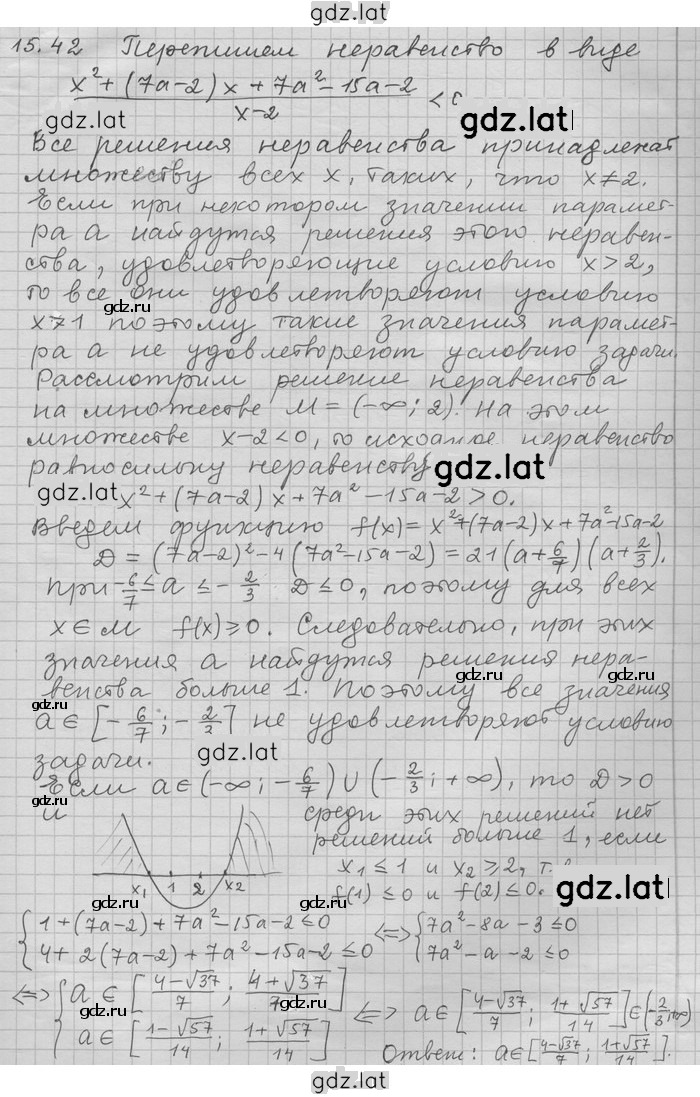 gdz.lat
15.42 Перепишем неравенство в виде
x² + (7a-2)x + 7a² - 15a - 2
x-2
gdz.lat
gdz.lat
Все решения неравенства принадлежат
множеству всех x, таких, что x≠2.
Если при некотором значении парамет-
ра a найдутся решения этого неравен-
ства, удовлетворяющие условию x>2,
то все они удовлетворяют условию
gdz.ru
gdz.ru
поэтому такие значения парамет-
ра a не удовлетворяют условию задачи
Рассмотрим решение неравенства
на множестве M = (-∞; 2). На этом
множестве x-2<0, то исходное неравенство
равносильну неравенству
gdz.lat
gdz.lat
x² + (7a-2)x + 7a² - 15a - 2 > 0.
Введем функцию f(x) = x² + (7a-2)x + 7a² - 15a - 2
D = (7a-2)² - 4(7a² - 15a - 2) = 21(a + 6/7)(a + 2/3).
при -6/7 ≤ a ≤ -2/3 D ≤ 0, поэтому для всех
x ∈ M f(x) ≥ 0. Следовательно, при этих
значения a найдутся решения нера-
венства больше 1. Поэтому все значения
a ∈ [-6/7; -2/3] не удовлетворяют условию
gdz.lat
задачи.
Если a ∈ (-∞; -6/7) ∪ (-2/3; +∞), то D > 0
и
gdz.ru
среди этих решений нет
gdz.ru
решений больше 1, если
x₁ 1 2 x₂
x₁ ≤ 1 и x₂ ≥ 2, т.
f(1) ≤ 0 и f(2) ≤ 0.
gdz.lat
gdz.ru
gdz.ru
{1 + (7a-2) + 7a² - 15a - 2 ≤ 0 <=> {7a² - 8a - 3 ≤ 0
{4 + 2(7a-2) + 7a² - 15a - 2 ≤ 0 {7a² - a - 2 ≤ 0
<=> {a ∈ [(4-√37)/7; (4+√37)/7]
gdz.ru
gdz.ru
{a ∈ [(1-√57)/14; (1+√57)/14]
<=> a ∈ [(4-√37)/7; (1+√57)/14] ∈ (-2/3; +∞)
Ответ: a ∈ [(4-√37)/7; (1+√57)/14].
gdz.lat